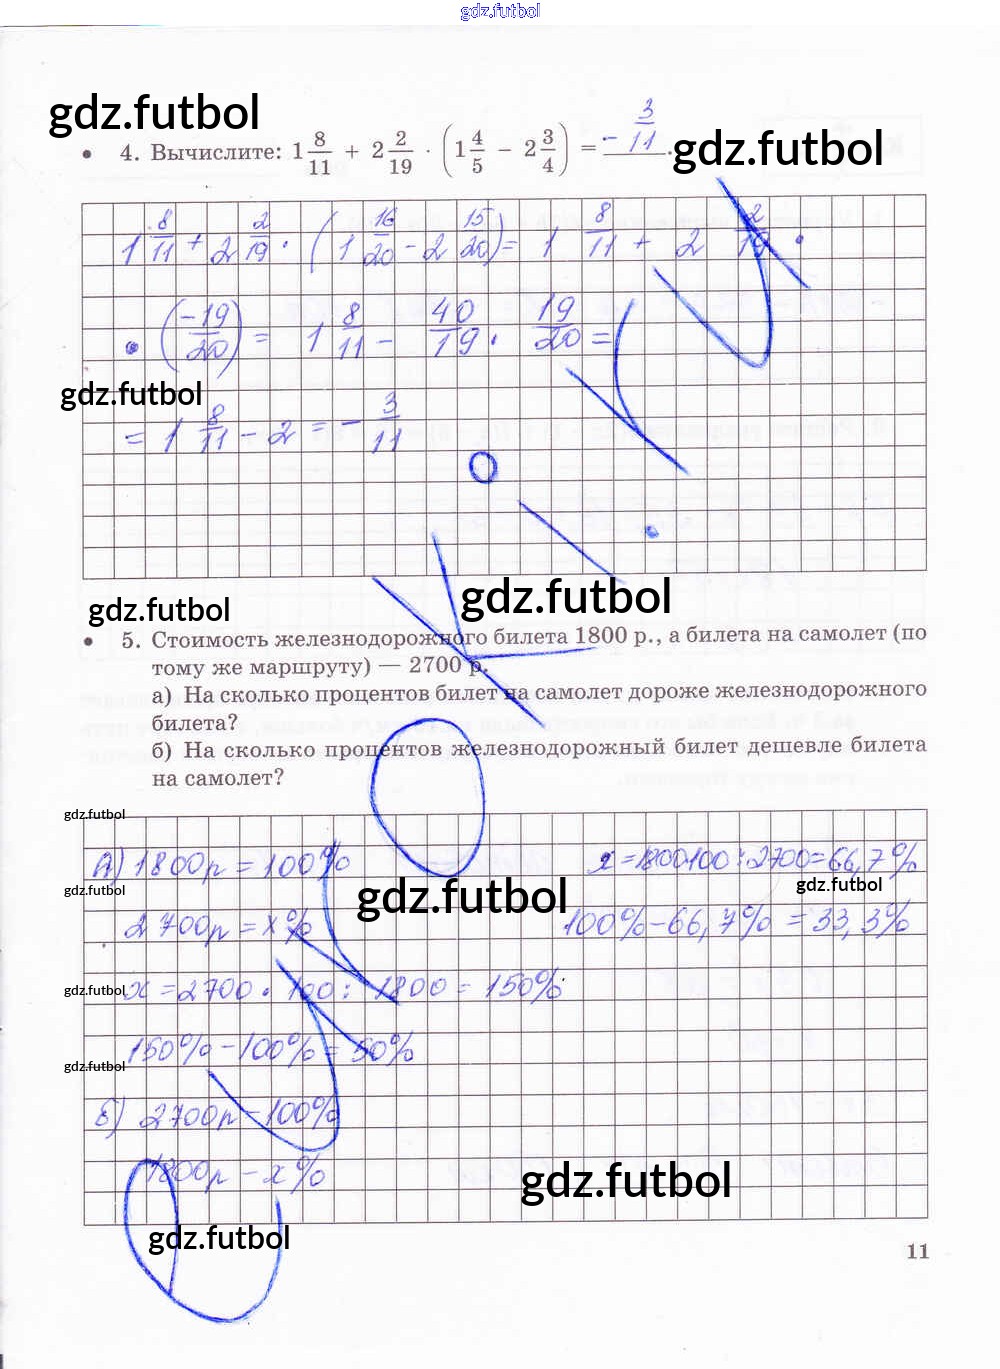 gdz.futbol
gdz.futbol
• 4. Вычислите: 1 8/11 + 2 2/19 · (1 4/5 − 2 3/4) = − 3/11.
gdz.futbol
1 8/11 + 2 2/19 · (1 16/20 − 2 15/20) = 1 8/11 + 2 2/19 ·
· (−19/20) = 1 8/11 − 40/19 · 19/20 =
gdz.futbol
= 1 8/11 − 2 = − 3/11
gdz.futbol
gdz.futbol
• 5. Стоимость железнодорожного билета 1800 р., а билета на самолет (по
тому же маршруту) — 2700 р.
а) На сколько процентов билет на самолет дороже железнодорожного
билета?
б) На сколько процентов железнодорожный билет дешевле билета
на самолет?
gdz.futbol
А) 1800р = 100%
x = 1800·100 : 2700 = 66,7%
gdz.futbol
gdz.futbol
gdz.futbol
2700р = x%
100% − 66,7% = 33,3%
gdz.futbol
x = 2700 · 100 : 1800 = 150%
150% − 100% = 50%
gdz.futbol
б) 2700р − 100%
1800р − x%
gdz.futbol
gdz.futbol
11